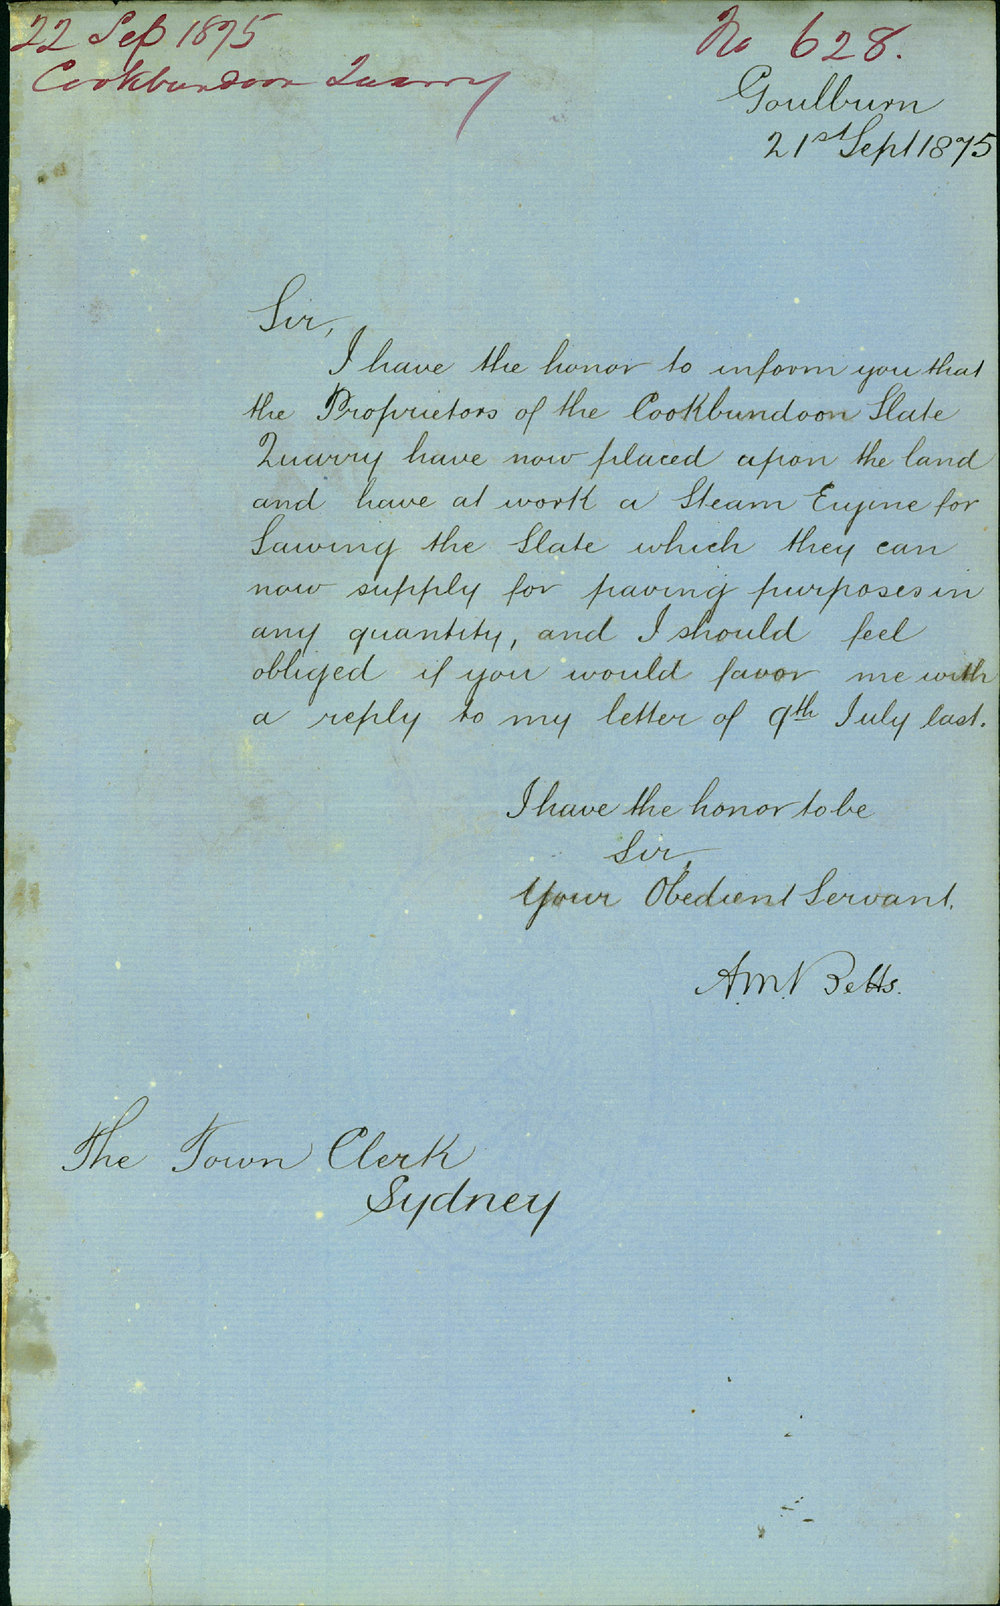 22 Sep 1875
Cookbundoon Quarry
No 628.
Goulburn
21st Sept 1875
Sir,
I have the honor to inform you that
the Proprietors of the Cookbundoon Slate
Quarry have now placed upon the land
and have at work a Steam Engine for
Sawing the Slate which they can
now supply for paving purposes in
any quantity, and I should feel
obliged if you would favor me with
a reply to my letter of 9th July last.
I have the honor to be
Sir,
Your Obedient Servant.
A.M. Betts.
The Town Clerk
Sydney